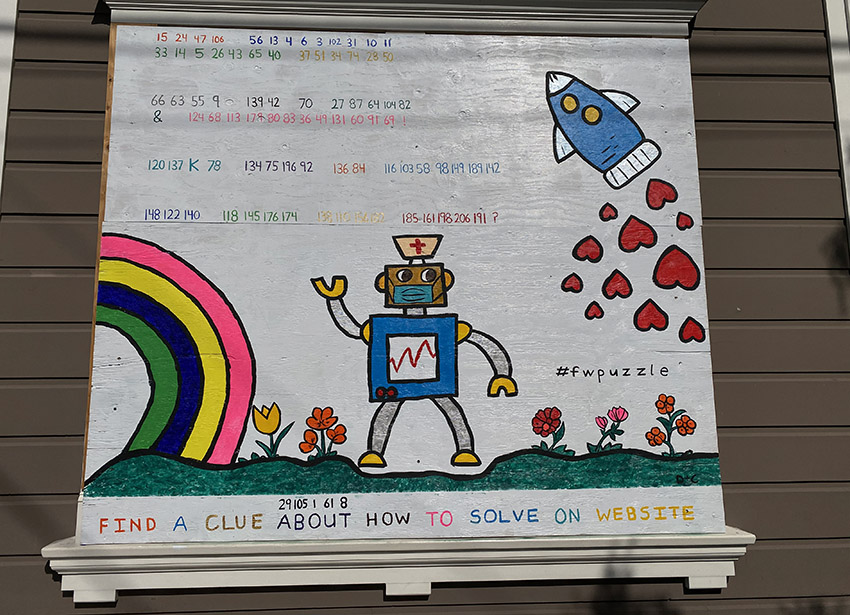 15 24 47 106 56 13 4 6 3 102 31 10 11
33 14 5 26 43 65 40 37 51 34 74 28 50
66 63 55 9 139 42 70 27 87 64 104 82
& 124 68 113 179 80 83 36 49 131 60 91 69 !
120 137 K 78 134 75 196 92 136 84 116 103 58 98 149 189 142
148 122 140 118 145 176 174 185 161 198 206 191 ?
#fwpuzzle
29 105 1 61 8
FIND A CLUE ABOUT HOW TO SOLVE ON WEBSITE